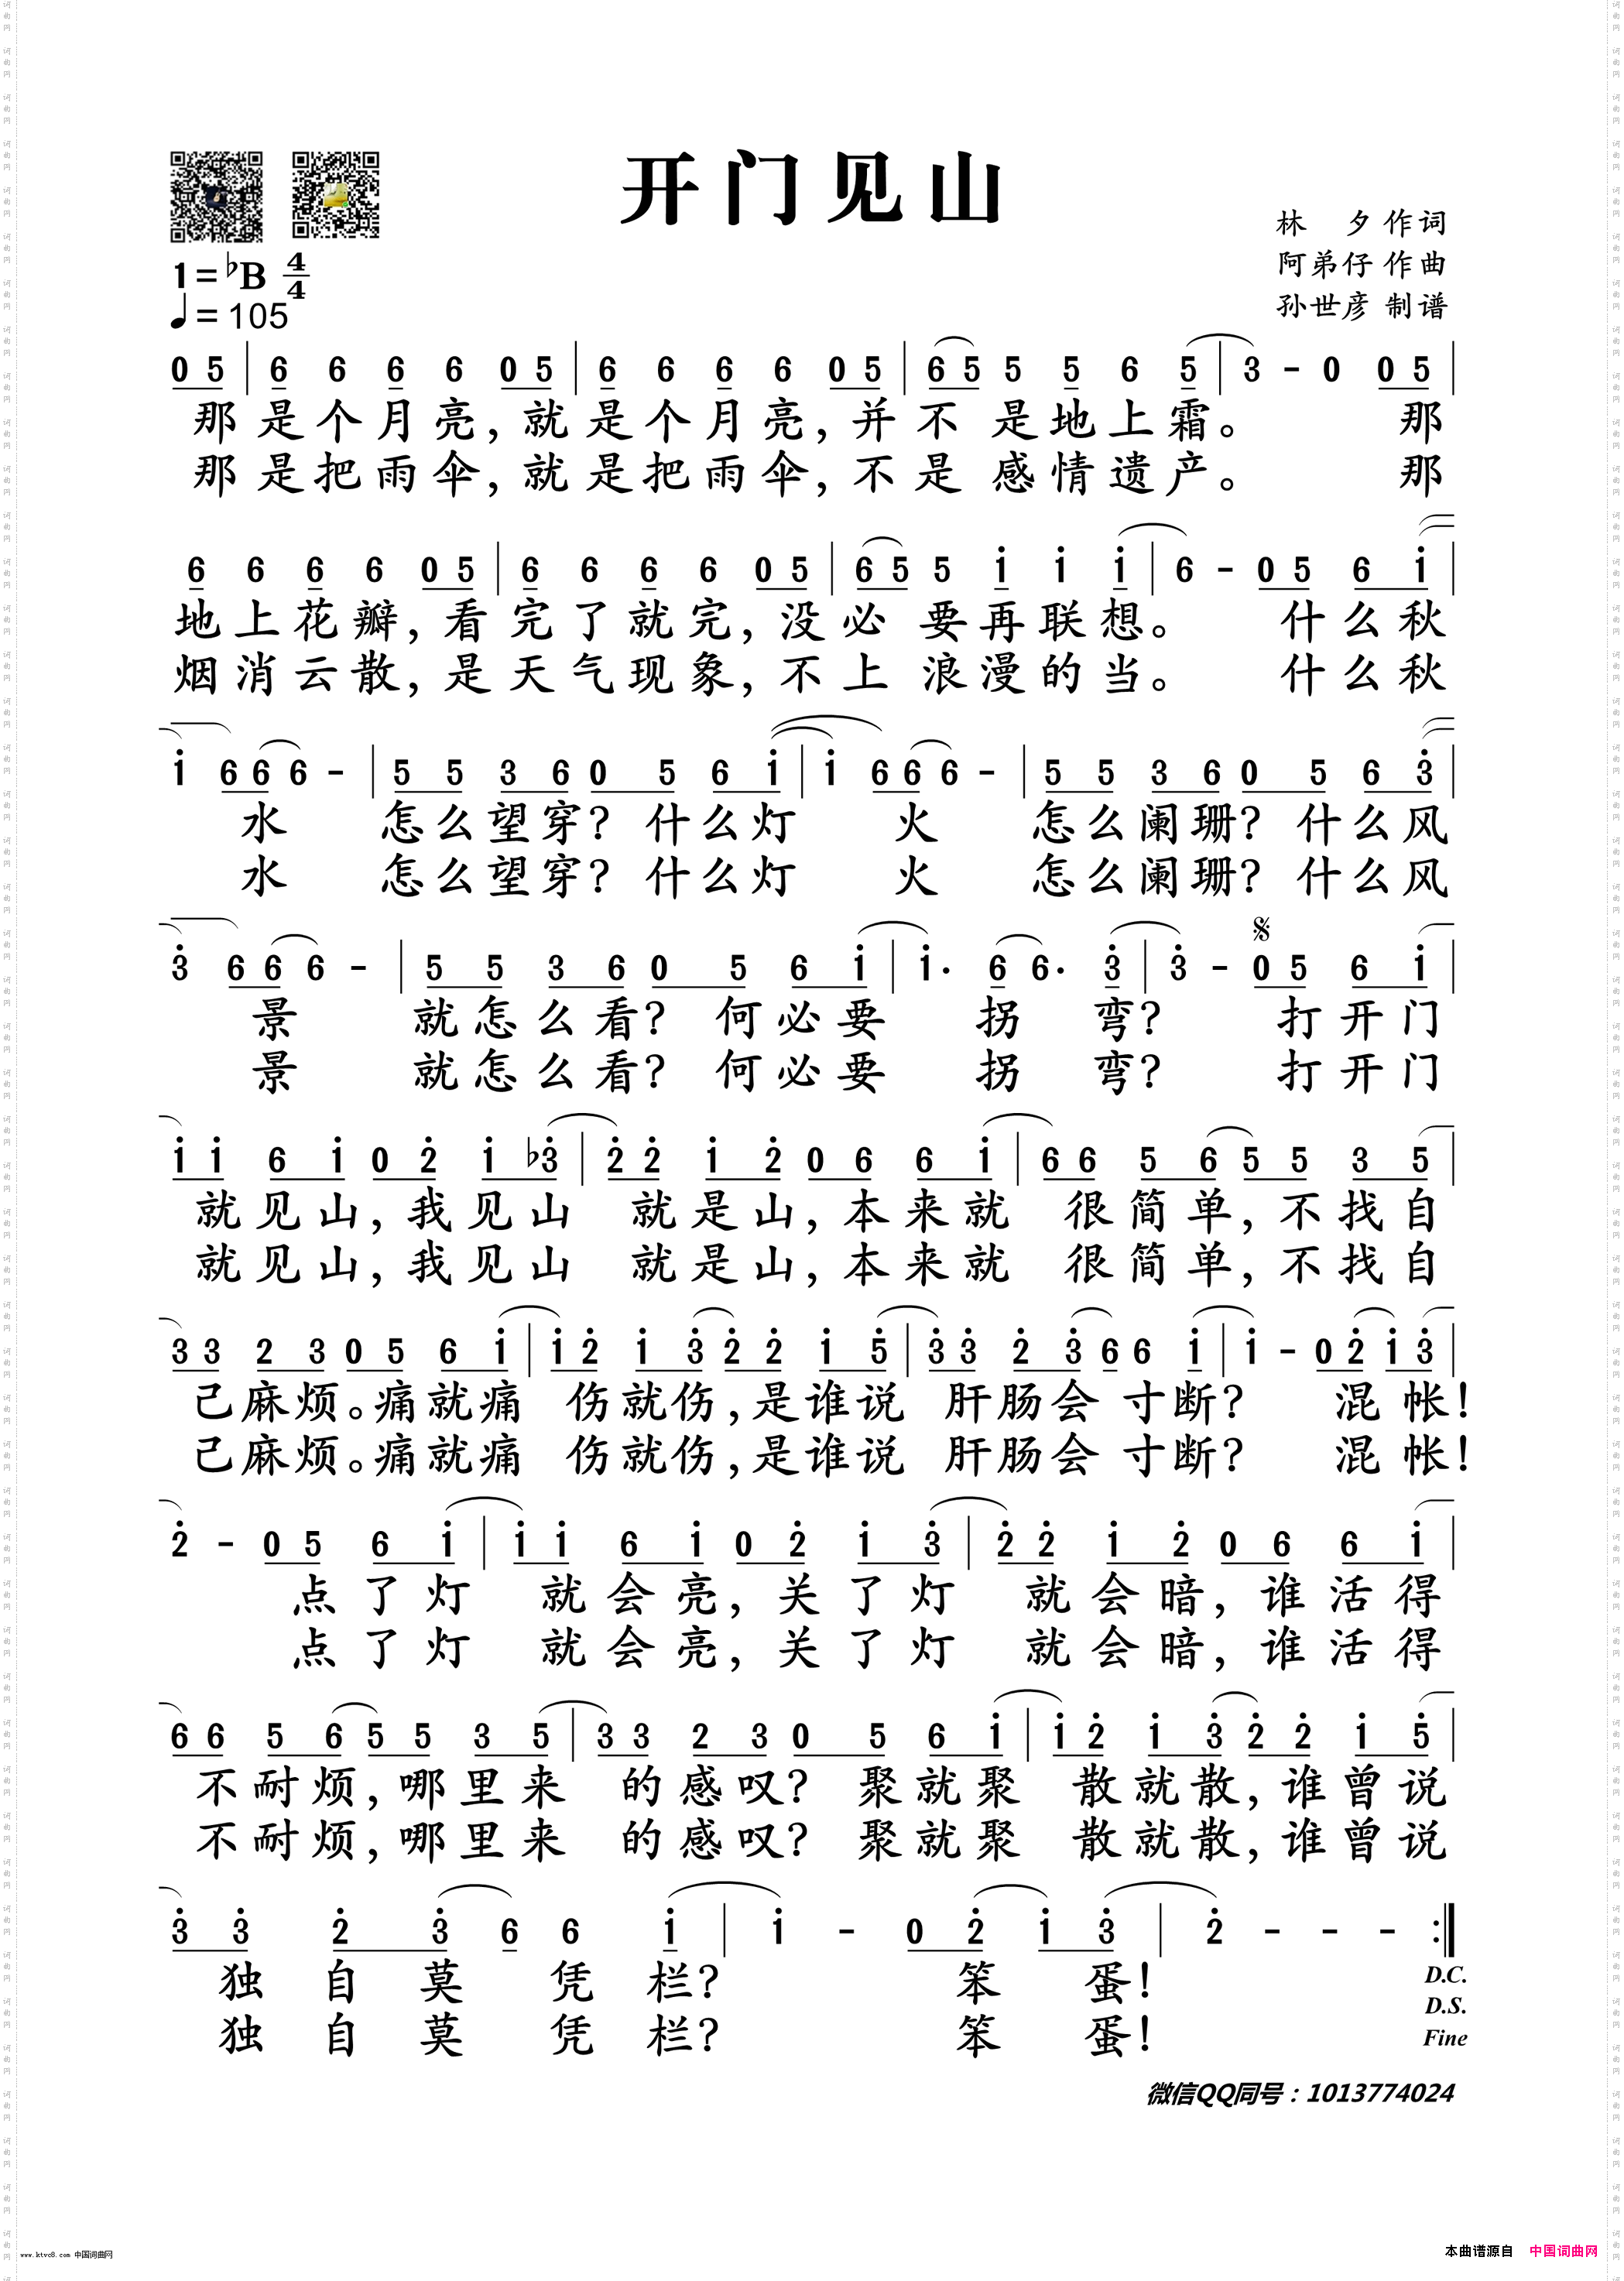 开门见山
林 夕 作 词
阿弟仔 作 曲
孙世彦 制 谱
1=♭B 4/4
♩=105
0 5 | 6 6 6 6 0 5 | 6 6 6 6 0 5 | 6 5 5 5 6 5 | 3 - 0 0 5 |
那 是 个 月 亮, 就 是 个 月 亮, 并 不 是 地 上 霜。 那
那 是 把 雨 伞, 就 是 把 雨 伞, 不 是 感 情 遗 产。 那
6 6 6 6 0 5 | 6 6 6 6 0 5 | 6 5 5 i i i | 6 - 0 5 6 i |
地 上 花 瓣, 看 完 了 就 完, 没 必 要 再 联 想。 什 么 秋
烟 消 云 散, 是 天 气 现 象, 不 上 浪 漫 的 当。 什 么 秋
i 6 6 6 - | 5 5 3 6 0 5 6 i | i 6 6 6 - | 5 5 3 6 0 5 6 3̇ |
水 怎 么 望 穿? 什 么 灯 火 怎 么 阑 珊? 什 么 风
水 怎 么 望 穿? 什 么 灯 火 怎 么 阑 珊? 什 么 风
3̇ 6 6 6 - | 5 5 3 6 0 5 6 i | i· 6 6· 3̇ | 3̇ - 𝄋 0 5 6 i |
景 就 怎 么 看? 何 必 要 拐 弯? 打 开 门
景 就 怎 么 看? 何 必 要 拐 弯? 打 开 门
i i 6 i 0 2̇ i ♭3̇ | 2̇ 2̇ i 2̇ 0 6 6 i | 6 6 5 6 5 5 3 5 |
就 见 山, 我 见 山 就 是 山, 本 来 就 很 简 单, 不 找 自
就 见 山, 我 见 山 就 是 山, 本 来 就 很 简 单, 不 找 自
3 3 2 3 0 5 6 i | i 2̇ i 3̇ 2̇ 2̇ i 5̇ | 3̇ 3̇ 2̇ 3̇ 6 6 i | i - 0 2̇ i 3̇ |
己 麻 烦。痛 就 痛 伤 就 伤, 是 谁 说 肝 肠 会 寸 断? 混 帐!
己 麻 烦。痛 就 痛 伤 就 伤, 是 谁 说 肝 肠 会 寸 断? 混 帐!
2̇ - 0 5 6 i | i i 6 i 0 2̇ i 3̇ | 2̇ 2̇ i 2̇ 0 6 6 i |
点 了 灯 就 会 亮, 关 了 灯 就 会 暗, 谁 活 得
点 了 灯 就 会 亮, 关 了 灯 就 会 暗, 谁 活 得
6 6 5 6 5 5 3 5 | 3 3 2 3 0 5 6 i | i 2̇ i 3̇ 2̇ 2̇ i 5̇ |
不 耐 烦, 哪 里 来 的 感 叹? 聚 就 聚 散 就 散, 谁 曾 说
不 耐 烦, 哪 里 来 的 感 叹? 聚 就 聚 散 就 散, 谁 曾 说
3̇ 3̇ 2̇ 3̇ 6 6 i | i - 0 2̇ i 3̇ | 2̇ - - - :|
独 自 莫 凭 栏? 笨 蛋!
独 自 莫 凭 栏? 笨 蛋!
D.C.
D.S.
Fine
微信QQ同号：1013774024
www.ktvc8.com 中国词曲网
本曲谱源自 中国词曲网